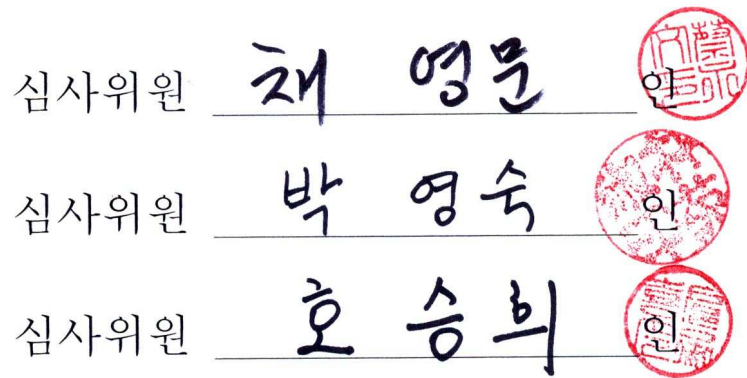 심사위원 채 영문 인
심사위원 박 영숙 인
심사위원 호 승희 인